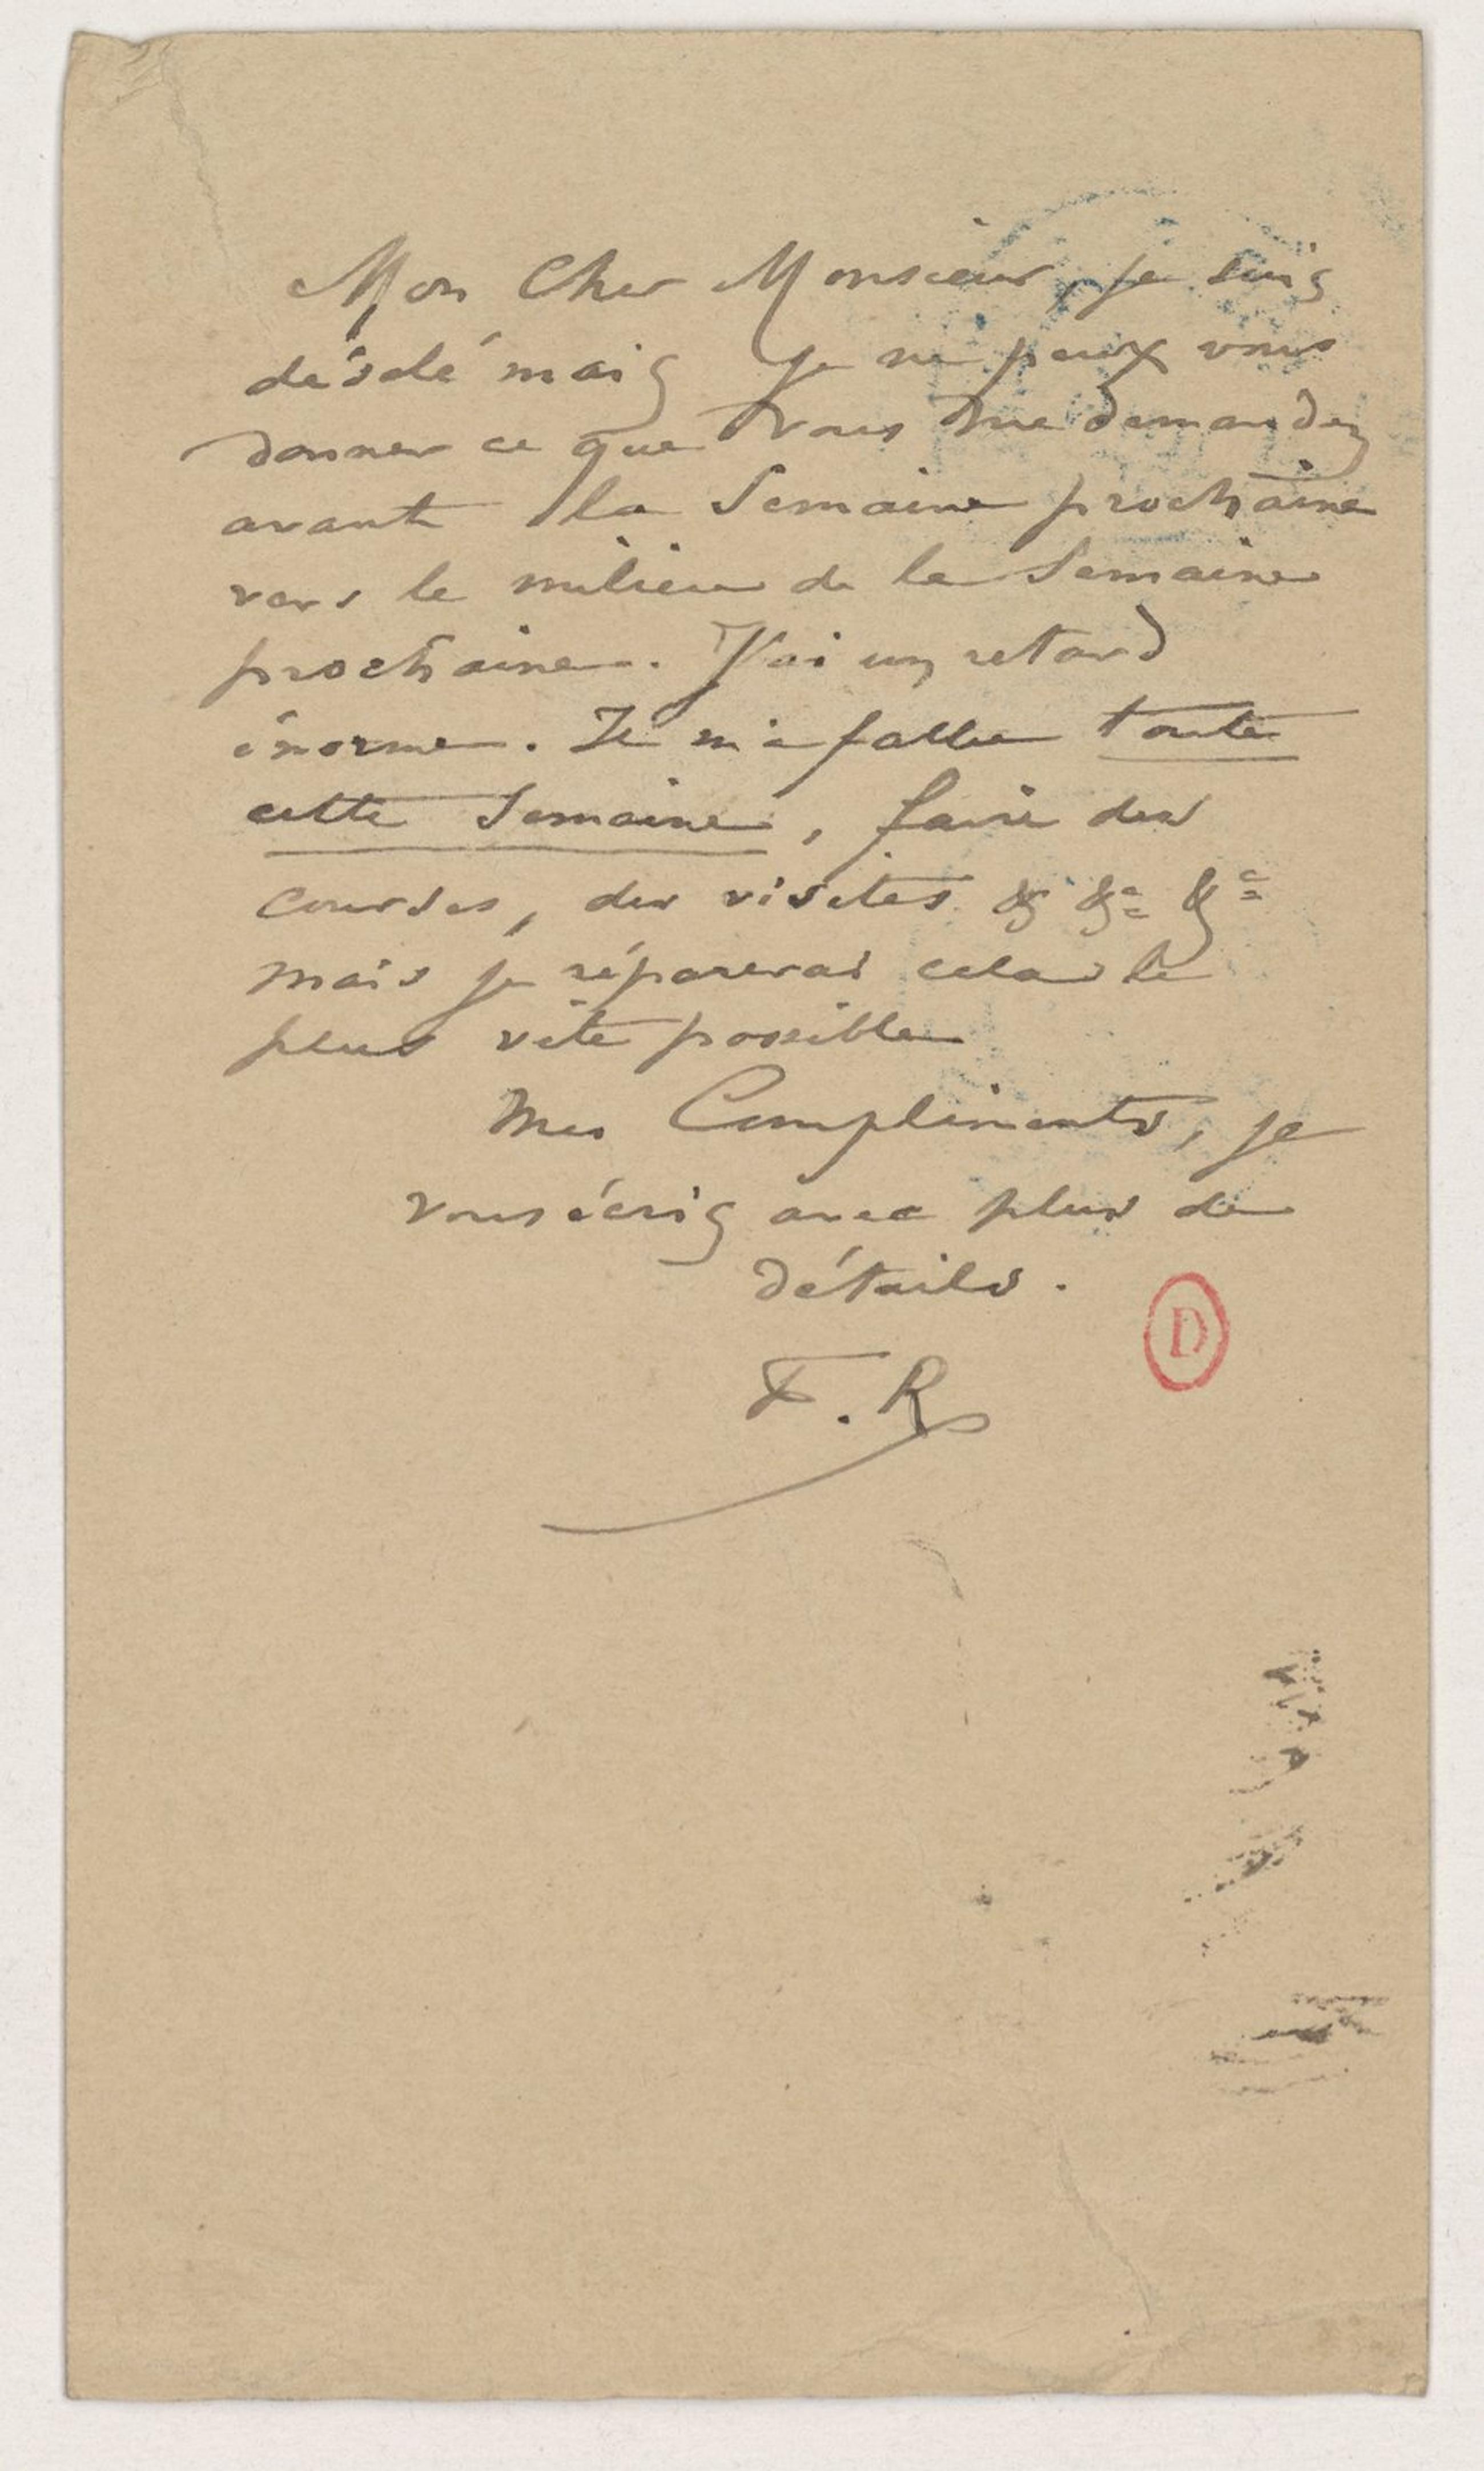 Mon Cher Monsieur, je suis
désolé mais je ne peux vous
donner ce que vous me demandez
avant la Semaine prochaine
vers le milieu de la Semaine
prochaine. J'ai un retard
énorme. Il m'a fallu toute
cette Semaine, faire des
courses, des visites & &c &c
mais je réparerai cela le
plus vite possible
Mes Compliments, je
vous écris avec plus de
détails.
F. R
D